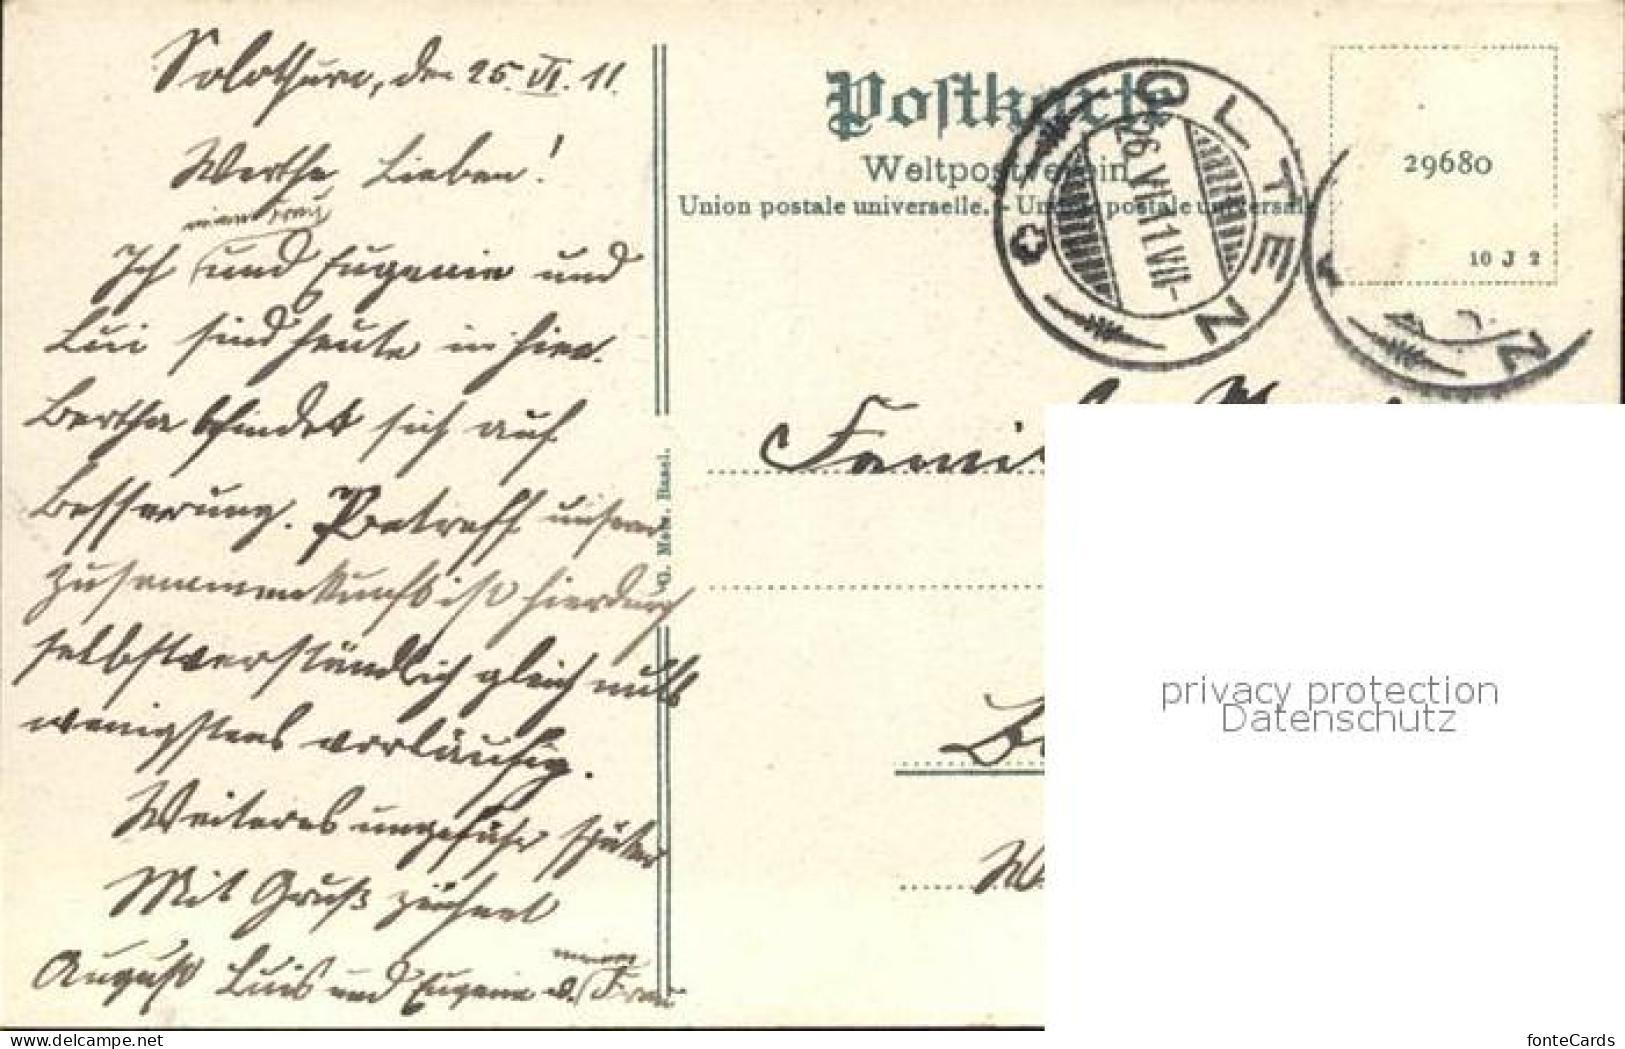 Solothurn, den 25. VI. 11.
Werthe Lieben!
meine Frau
Ich und Eugenie und
Lui sind heute in hier.
Bertha befindet sich auf
Besserung. Betreff unsere
Zusammenkunft ist hierdurch
selbstverständlich gleich null
wenigstens vorläufig.
Weiteres ungefähr später
Mit Gruß zeichnet
meine
August Luis und Eugenie u. Frau
Postkarte
Weltpostverein
Union postale universelle. - Union postale universelle
G. Metz. Basel.
OLTEN
26.VI.11.VII-
29680
10 J 2
Famil
privacy protection
Datenschutz
www.delcampe.net
fonteCards